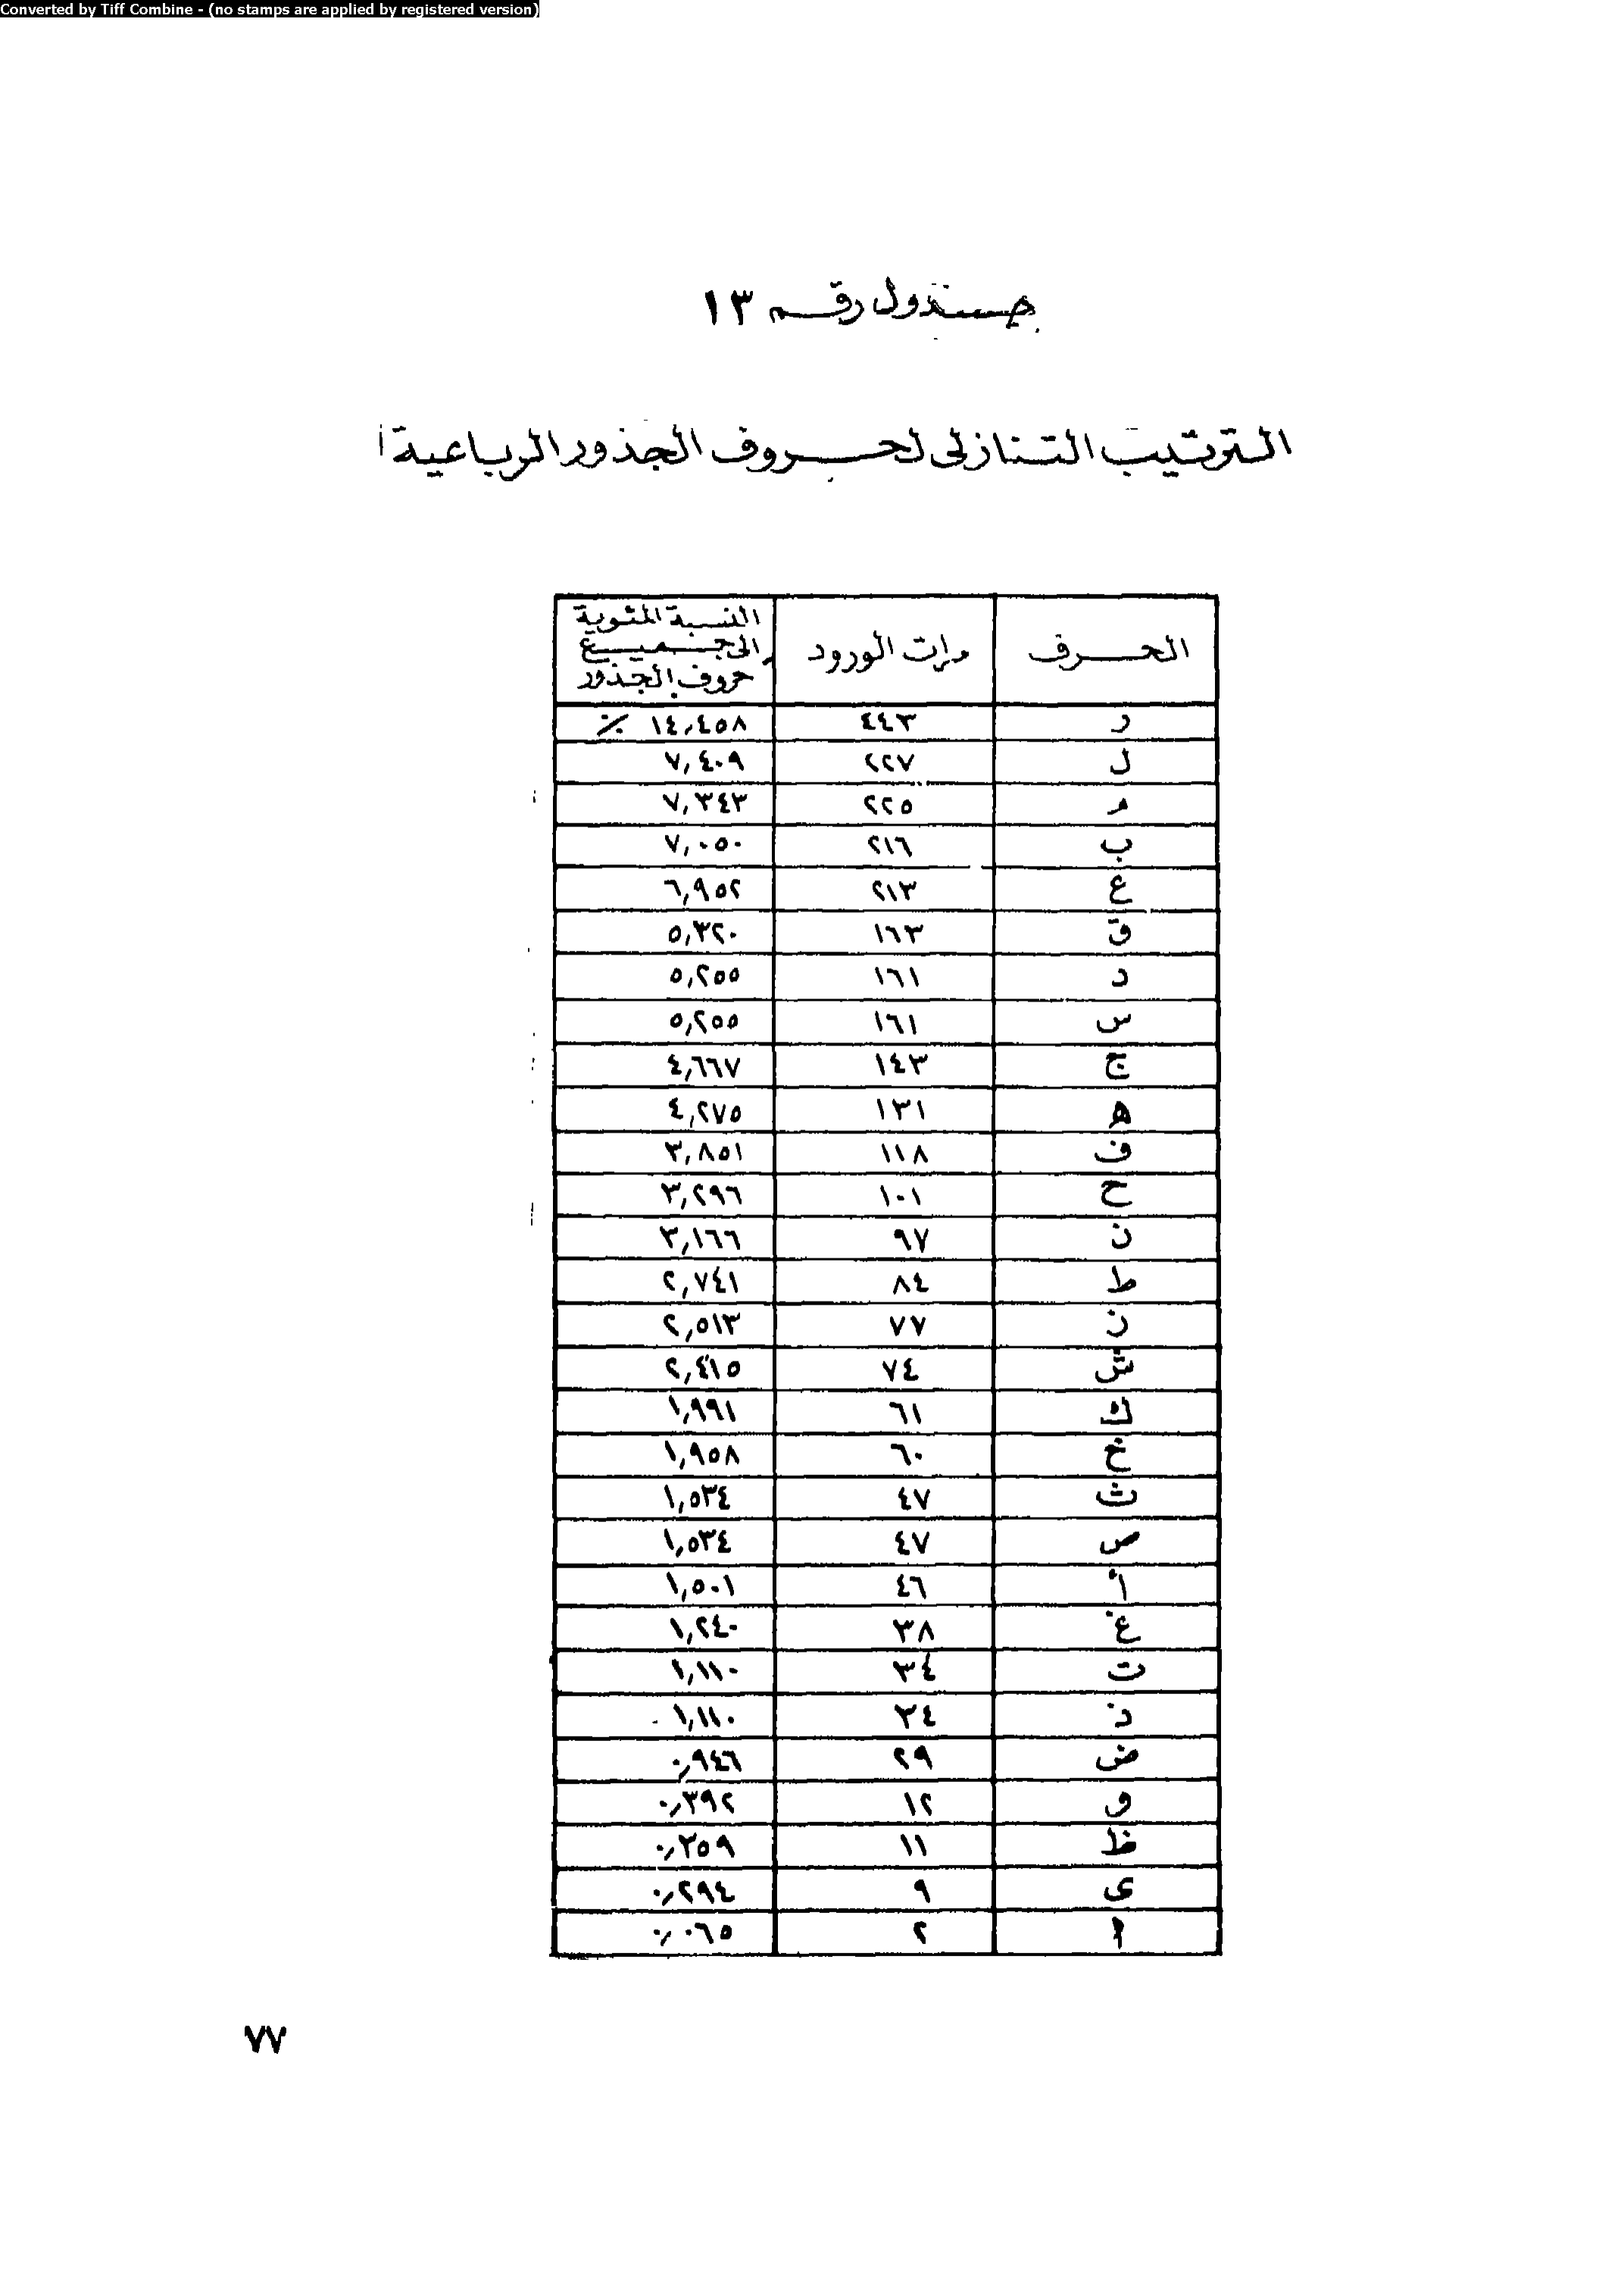 Converted by Tiff Combine - (no stamps are applied by registered version)
جدول رقم ١٣
الترتيب التنازلى لحروف الجذور الرباعية
الحرف مرات الورود النسبة المئوية
إلى جميع
حروف الجذور
ر ٤٤٣ ١٤,٤٥٨ ٪
ل ٢٢٧ ٧,٤٠٩
م ٢٢٥ ٧,٣٤٣
ب ٢١٦ ٧,٠٥٠
ع ٢١٣ ٦,٩٥٢
ق ١٦٣ ٥,٣٢٠
د ١٦١ ٥,٢٥٥
س ١٦١ ٥,٢٥٥
ج ١٤٣ ٤,٦٦٧
ه ١٣١ ٤,٢٧٥
ف ١١٨ ٣,٨٥١
ح ١٠١ ٣,٢٩٦
ن ٩٧ ٣,١٦٦
ط ٨٤ ٢,٧٤١
ز ٧٧ ٢,٥١٣
ش ٧٤ ٢,٤١٥
ك ٦١ ١,٩٩١
خ ٦٠ ١,٩٥٨
ث ٤٧ ١,٥٣٤
ص ٤٧ ١,٥٣٤
أ ٤٦ ١,٥٠١
غ ٣٨ ١,٢٤٠
ت ٣٤ ١,١١٠
ذ ٣٤ ١,١١٠
ض ٢٩ ٠,٩٤٦
و ١٢ ٠,٣٩٢
ظ ١١ ٠,٣٥٩
ى ٩ ٠,٢٩٤
ا ٢ ٠,٠٦٥
٧٧